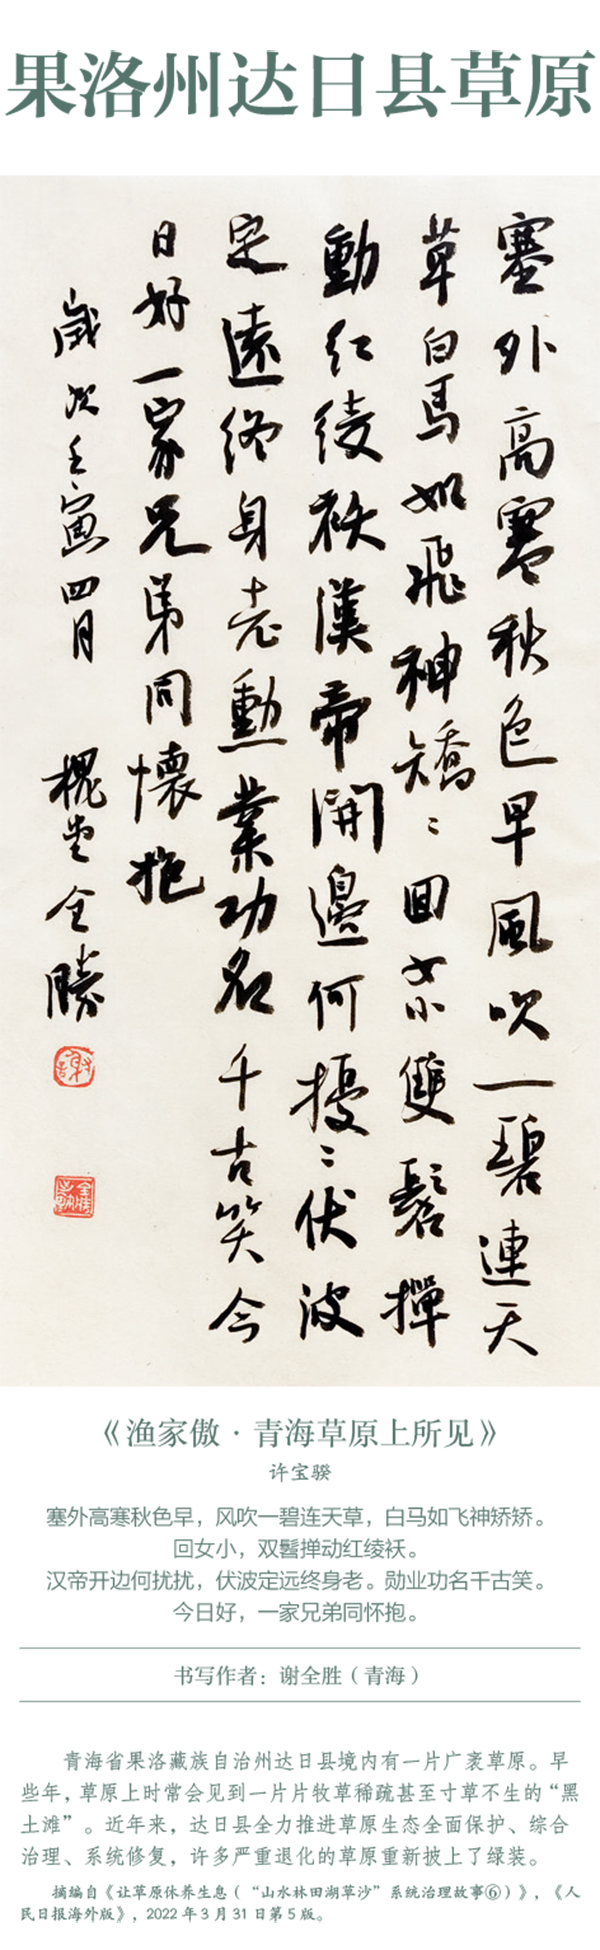 果洛州达日县草原
塞外高寒秋色早風吹一碧連天
草白馬如飛神矯〻回女小雙髻撣
動紅綾襖漢帝開邊何擾〻伏波
定遠終身老勳業功名千古笑今
日好一家兄弟同懷抱
歲次壬寅四月 槐堂全勝
《渔家傲·青海草原上所见》
许宝骙
塞外高寒秋色早，风吹一碧连天草，白马如飞神矫矫。
回女小，双髻掸动红绫袄。
汉帝开边何扰扰，伏波定远终身老。勋业功名千古笑。
今日好，一家兄弟同怀抱。
书写作者：谢全胜（青海）
青海省果洛藏族自治州达日县境内有一片广袤草原。早
些年，草原上时常会见到一片片牧草稀疏甚至寸草不生的“黑
土滩”。近年来，达日县全力推进草原生态全面保护、综合
治理、系统修复，许多严重退化的草原重新披上了绿装。
摘编自《让草原休养生息（“山水林田湖草沙”系统治理故事⑥）》，《人
民日报海外版》，2022年3月31日第5版。